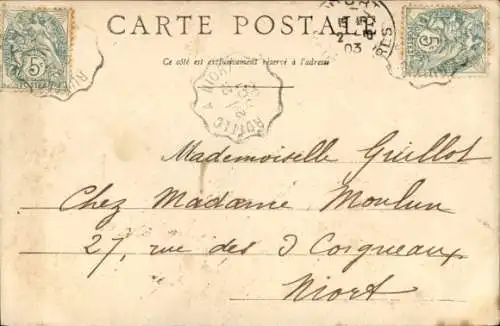 CARTE POSTALE
Ce côté est exclusivement réservé à l'adresse
Mademoiselle Guillot
Chez Madame Moulun
27, rue des 3 Coigneaux
Niort